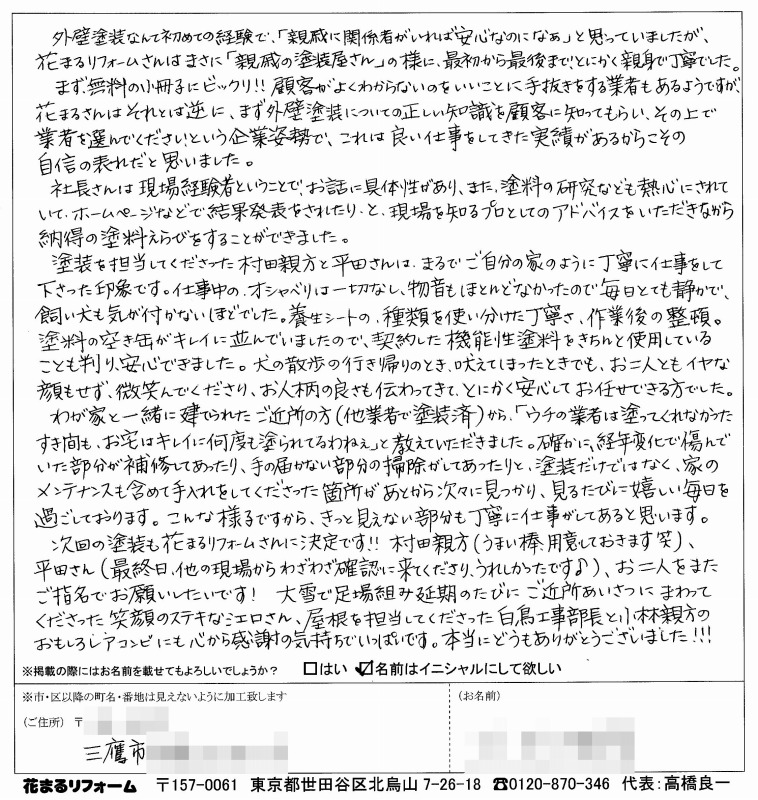 外壁塗装なんて初めての経験で、「親戚に関係者がいれば安心なのになぁ」と思っていましたが、
花まるリフォームさんはまさに「親戚の塗装屋さん」の様に、最初から最後まで、とにかく親身で丁寧でした。
まず無料の小冊子にビックリ!! 顧客がよくわからないのをいいことに手抜きをする業者もあるようですが、
花まるさんはそれとは逆に、まず外壁塗装についての正しい知識を顧客に知ってもらい、その上で
業者を選んでください!という企業姿勢で、これは良い仕事をしてきた実績があるからこその
自信の表れだと思いました。
社長さんは現場経験者ということで、お話に具体性があり、また、塗料の研究なども熱心にされて
いて、ホームページなどで結果発表をされたり、と、現場を知るプロとしてのアドバイスをいただきながら
納得の塗料えらびをすることができました。
塗装を担当してくださった村田親方と平田さんは、まるでご自分の家のように丁寧に仕事をして
下さった印象です。仕事中の、オシャベリは一切なし、物音もほとんどなかったので毎日とても静かで、
飼い犬も気が付かないほどでした。養生シートの、種類を使い分けた丁寧さ、作業後の整頓。
塗料の空き缶がキレイに並んでいましたので、契約した機能性塗料をきちんと使用している
ことも判り、安心できました。犬の散歩の行き帰りのとき、吠えてしまったときでも、お二人ともイヤな
顔もせず、微笑んでくださり、お人柄の良さも伝わってきて、とにかく安心してお任せできる方でした。
わが家と一緒に建てられたご近所の方(他業者で塗装済)から、「ウチの業者は塗ってくれなかった
すき間も、お宅はキレイに何度も塗られてるわねぇ」と教えていただきました。確かに、経年変化で傷んで
いた部分が補修してあったり、手の届かない部分の掃除がしてあったりと、塗装だけではなく、家の
メンテナンスも含めて手入れをしてくださった箇所があとから次々に見つかり、見るたびに嬉しい毎日を
過ごしております。こんな様子ですから、きっと見えない部分も丁寧に仕事がしてあると思います。
次回の塗装も花まるリフォームさんに決定です!! 村田親方(うまい棒、用意しておきます笑)、
平田さん(最終日、他の現場からわざわざ確認に来てくださり、うれしかったです♪)、お二人をまた
ご指名でお願いしたいです! 大雪で足場組み延期のたびにご近所あいさつにまわって
くださった笑顔のステキなミエロさん、屋根を担当してくださった白鳥工事部長と小林親方の
おもしろレアコンビにも心から感謝の気持ちでいっぱいです。本当にどうもありがとうございました!!!
※掲載の際にはお名前を載せてもよろしいでしょうか? □はい ☑名前はイニシャルにして欲しい
※市・区以降の町名・番地は見えないように加工致します
(ご住所) 〒
(お名前)
三鷹市
花まるリフォーム 〒157-0061 東京都世田谷区北烏山7-26-18 ☎0120-870-346 代表:高橋良一